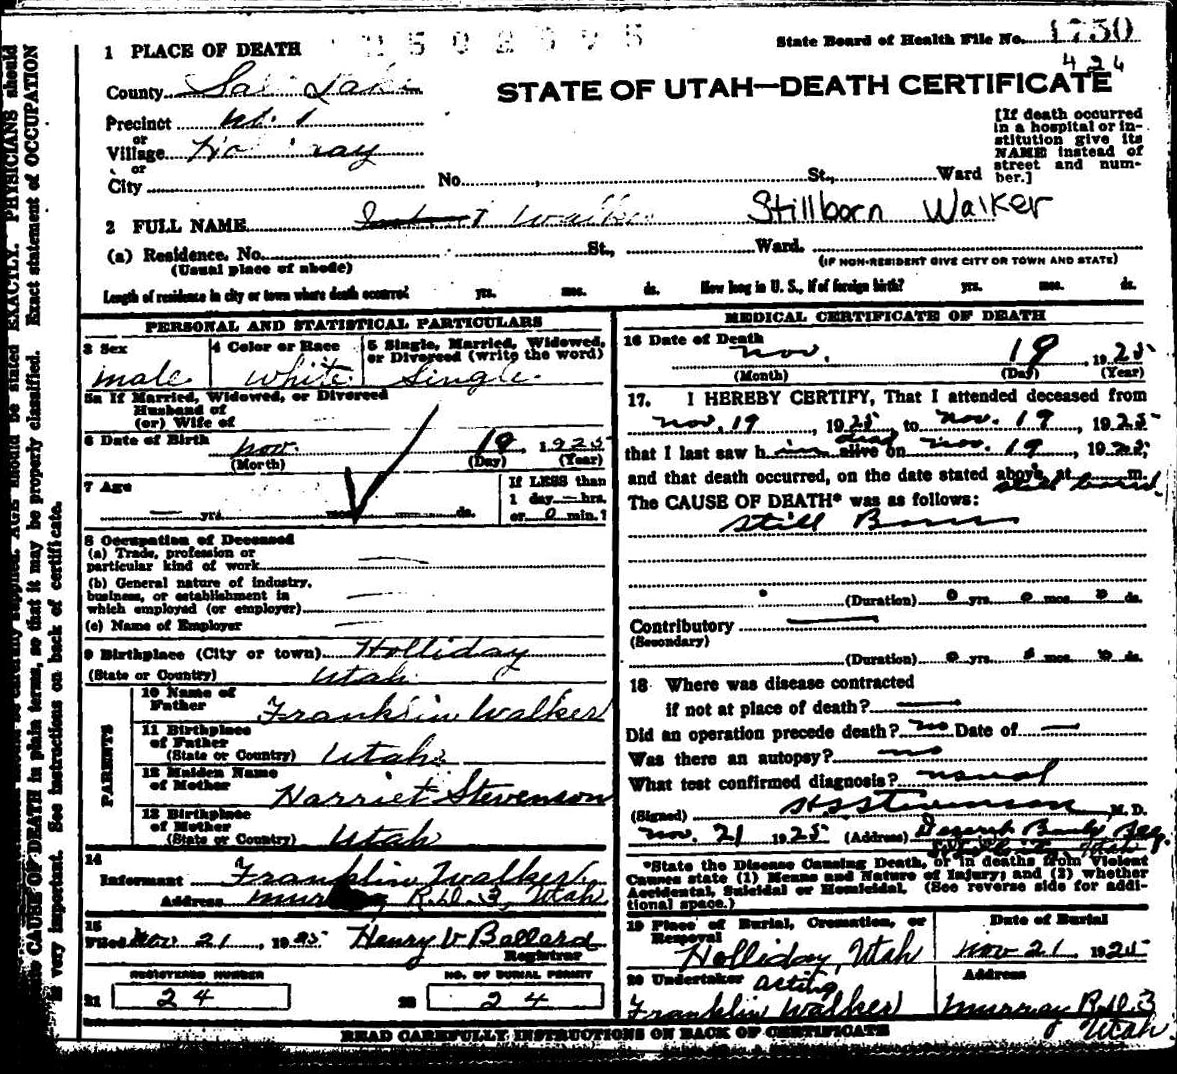 1 PLACE OF DEATH
State Board of Health File No. 1750
424
County Salt Lake
STATE OF UTAH—DEATH CERTIFICATE
Precinct No. 1
or
Village
or
City
No. St., Ward
[If death occurred in a hospital or in-
stitution give its
NAME instead of
street and num-
ber.]
2 FULL NAME Walker Stillborn Walker
(a) Residence. No. St., Ward.
(Usual place of abode)
(IF NON-RESIDENT GIVE CITY OR TOWN AND STATE)
Length of residence in city or town where death occurred yrs. mos. ds. How long in U. S., if of foreign birth? yrs. mos. ds.
PERSONAL AND STATISTICAL PARTICULARS
3 Sex
male
4 Color or Race
White
5 Single, Married, Widowed,
or Divorced (write the word)
Single
5a If Married, Widowed, or Divorced
Husband of
(or) Wife of
6 Date of Birth
Nov. 19, 1925
(Month) (Day) (Year)
7 Age
yrs. mos. ds.
If LESS than
1 day — hrs.
or 0 min.?
8 Occupation of Deceased
(a) Trade, profession or
particular kind of work
(b) General nature of industry,
business, or establishment in
which employed (or employer)
(c) Name of Employer
9 Birthplace (City or town) Holliday
(State or Country) Utah
PARENTS
10 Name of
Father Franklin Walker
11 Birthplace
of Father
(State or Country) Utah
12 Maiden Name
of Mother Harriet Stevenson
13 Birthplace
of Mother
(State or Country) Utah
14
Informant Franklin Walker
Address Murray R.D. 3, Utah
15
Filed Nov 21, 1925 Henry V Ballard
Registrar
REGISTERED NUMBER
21 24
NO. OF BURIAL PERMIT
22 24
MEDICAL CERTIFICATE OF DEATH
16 Date of Death
Nov. 19 1925
(Month) (Day) (Year)
17. I HEREBY CERTIFY, That I attended deceased from
Nov. 19, 1925, to Nov. 19, 1925
that I last saw h im alive dead on Nov. 19, 1925,
and that death occurred, on the date stated above, at m.
still born
The CAUSE OF DEATH* was as follows:
Still Born
(Duration) 0 yrs. 0 mos. 0 ds.
Contributory
(Secondary)
(Duration) 0 yrs. 0 mos. 0 ds.
18 Where was disease contracted
if not at place of death?
Did an operation precede death? no Date of —
Was there an autopsy? no
What test confirmed diagnosis? usual
(Signed) H S Stevenson M. D.
Nov. 21 1925 (Address) Deseret Bank Bldg
Utah
*State the Disease Causing Death, or in deaths from Violent
Causes state (1) Means and Nature of Injury; and (2) whether
Accidental, Suicidal or Homicidal. (See reverse side for addi-
tional space.)
19 Place of Burial, Cremation, or
Removal
Holliday, Utah
Date of Burial
Nov 21 1925
20 Undertaker acting
Franklin Walker
Address
Murray R.D. 3
Utah
READ CAREFULLY INSTRUCTIONS ON BACK OF CERTIFICATE
AGE should be stated EXACTLY. PHYSICIANS should
CAUSE OF DEATH in plain terms, so that it may be properly classified. Exact statement of OCCUPATION
is very important. See instructions on back of certificate.